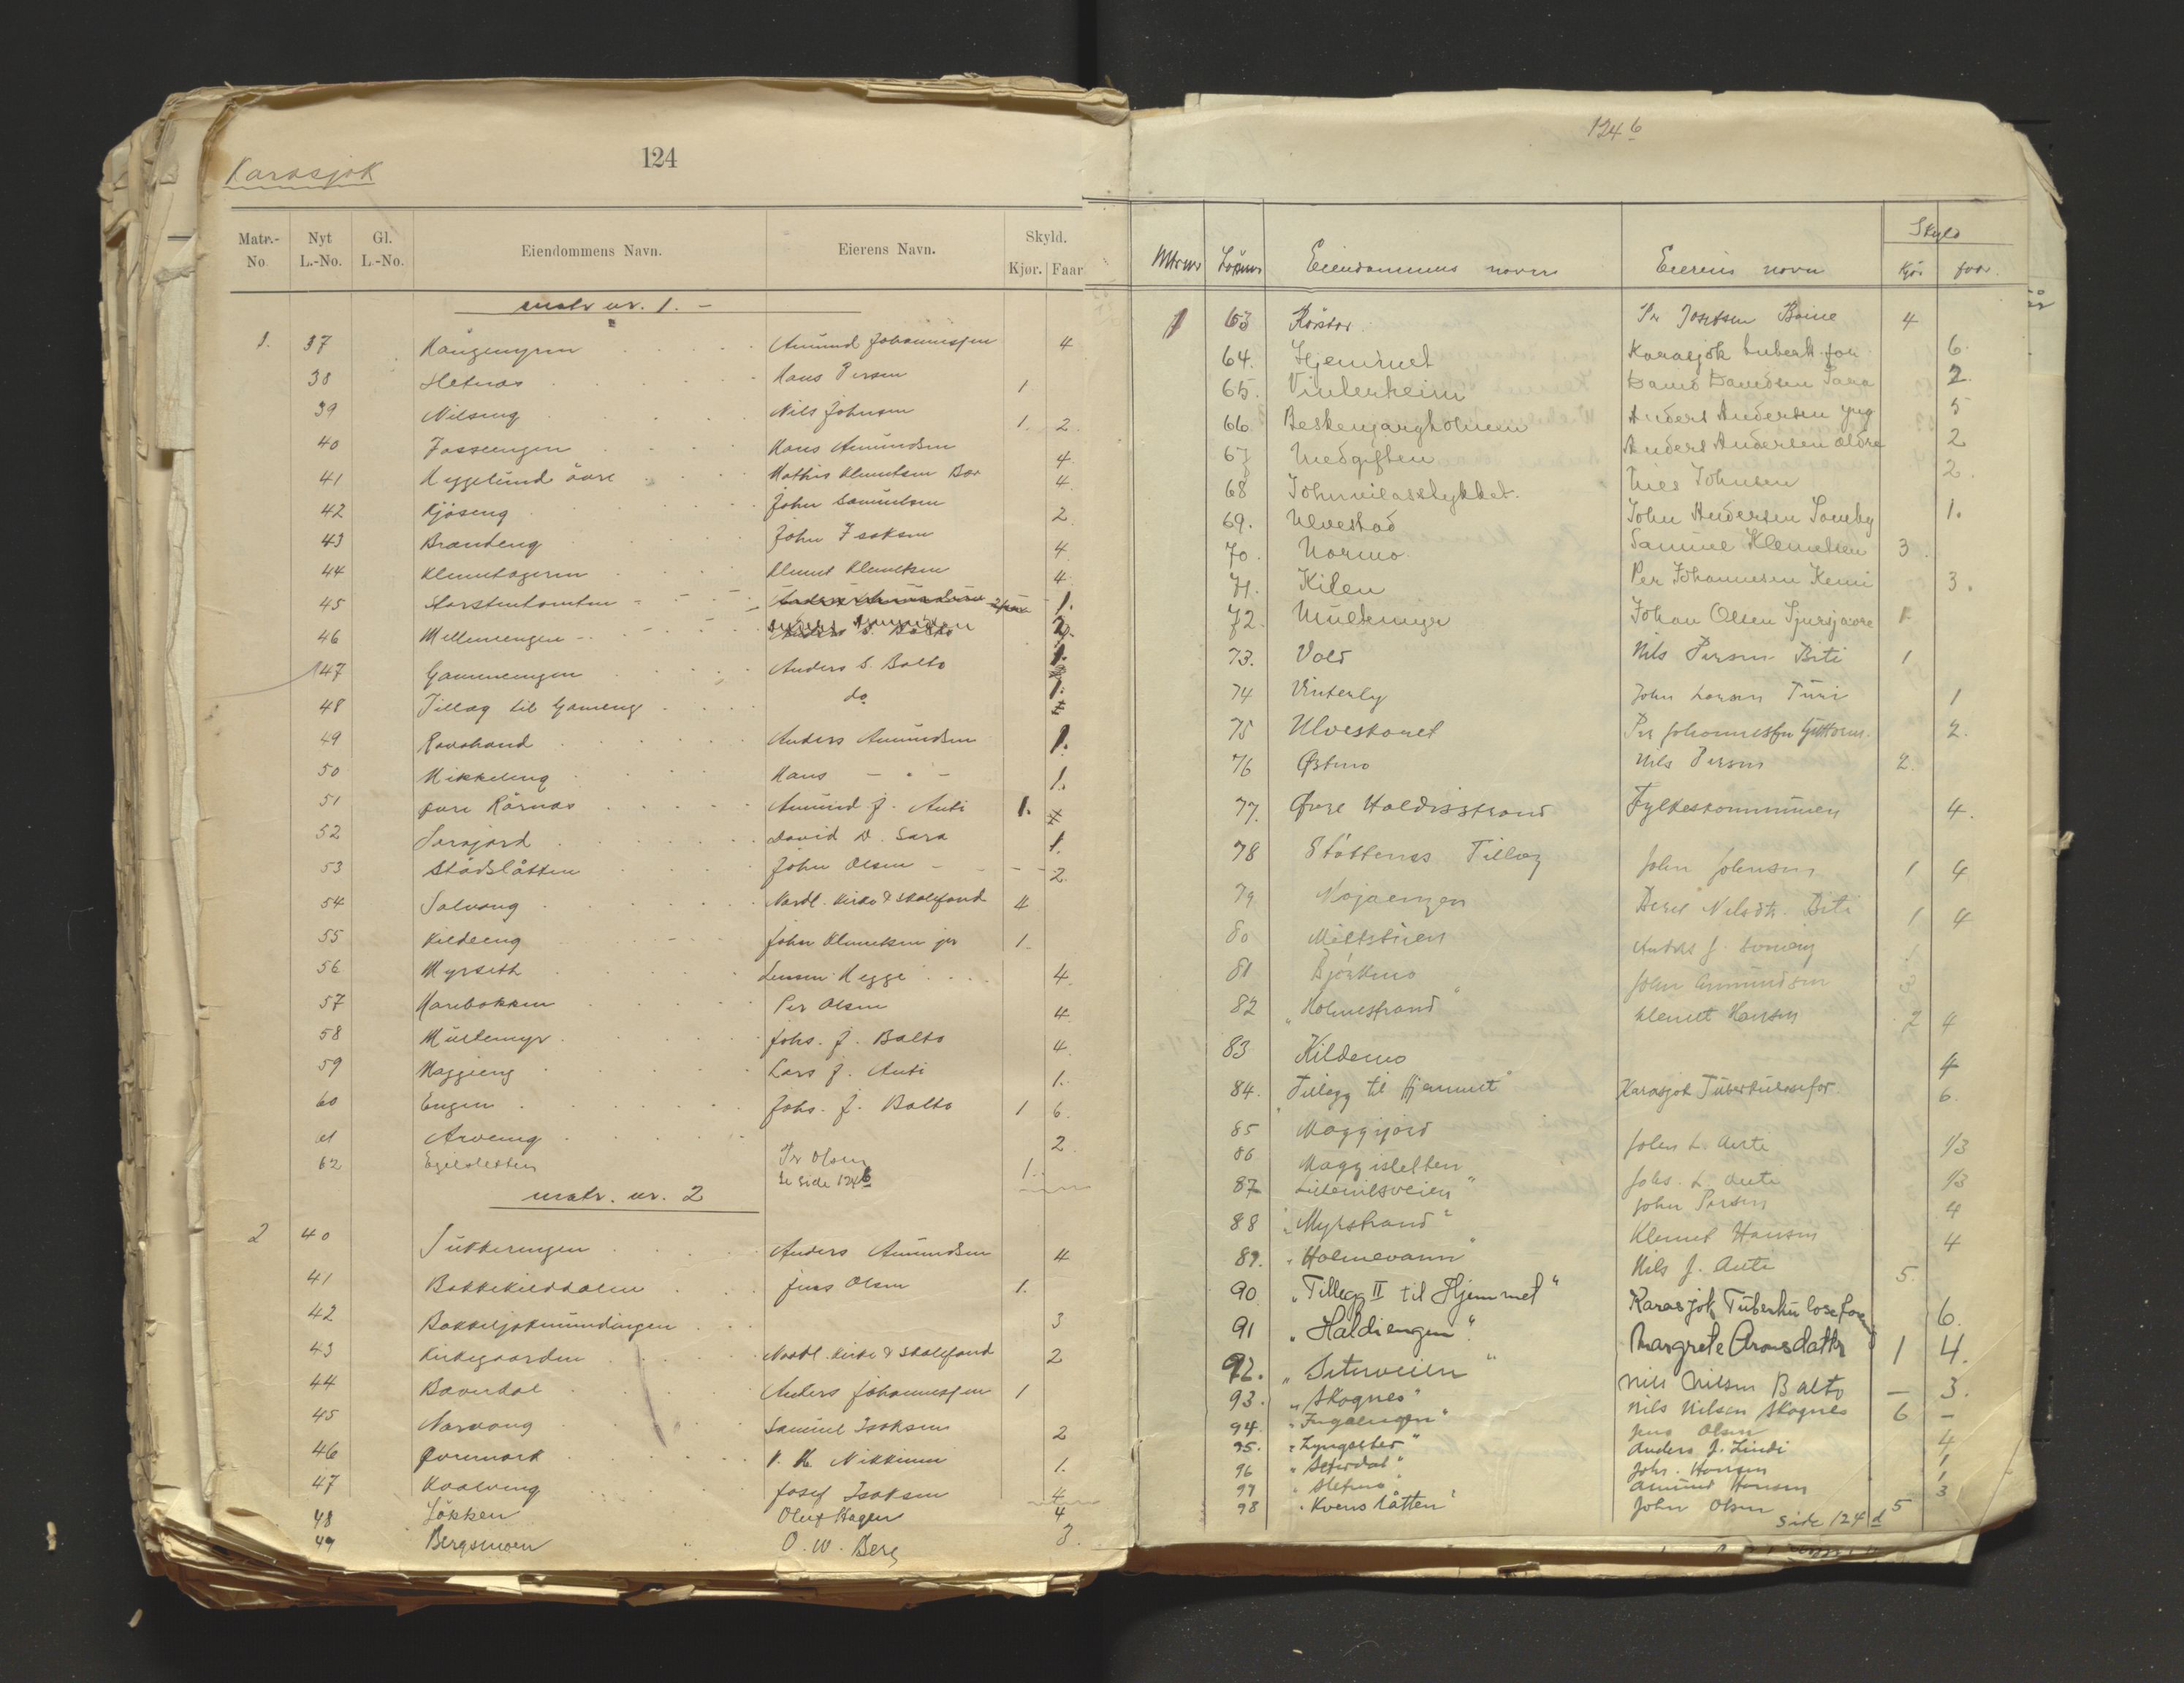 Karasjok
124
Matr.-No Nyt L.-No. Gl. L.-No. Eiendommens Navn. Eierens Navn. Skyld. Kjør. Faar
matr nr. 1. -
1. 37 Haugemyren Amund Johannesen 4
38 Hans Persen 1
39 Nilseng Nils Johnsen 1. 2
40 Hans Amundsen 4
41 Hyggelund övre Mathis Klemetsen 4
42 Kjöseng John Samuelsen 2
43 Brandeng John Isaksen 4
44 Klemetageren Klemet Klemetsen 4
45 1.
46 Mellemengen
47 Gammengen Anders S. Balto 1.
48 Tillæg til Gameng do 1.
49 Anders Amundsen 1.
50 Mikkeleng Hans - " - 1.
51 övre Rörnæs Amund J. Anti 1.
52 David D. Sara 1.
53 Stádslåtten John Olsen 2
54 Solvang Nordl. Kirke & Skolefond 4
55 Kildeeng John Klemetsen jr 1.
56 Myrseth Lensm. Hegge 4.
57 Harebakken Per Olsen 4
58 Multemyr Johs. J. Balto 4
59 Maggieng Lars J. Anti 1.
60 Engen Johs. J. Balto 1 6
61 Arveeng 2
62 Per Olsen 1.
Se side 124b
matr. nr. 2
2 40 Anders Amundsen 4
41 Jens Olsen 1.
42 3
43 Kirkegaarden Nordl. Kirke & Skolefond 2
44 Baverdal Anders Johannesen 1
45 Norvang Samuel Isaksen 2
46 Furumark 1.
47 Kvalveng Josef Isaksen 4
48 Løkken Oluf Hagen 4
49 Bergsmoen O. W. Berg 3.
124 b
Mtrnr Löpnr Eiendommens navn Eierens navn Skyld Kjör faar.
1 63 Per Josefsen Boine 4
64. Hjemmet Karasjok tuberk. for 6
65. Vinterheim David Davidsen Sara 2.
66. Beskenjargholmen Anders Andersen yng 5
67 Medgiften Anders Andersen ældre 2
68 Johnnilasstykket. Nils Johnsen 2.
69. Ulvestad John Andersen Somby 1.
70. Normo Samuel Klemetsen 3
71. Kilen Per Johannesen Kemi 3.
72. Multemyr Johan Olsen 1
73. Vold Nils Persen Biti 1
74 Vinterly John Larsen Turi 1
75 Per Johannessen Guttorm. 2.
76 Østmo Nils Persen 2.
77. Øvre Haldisstrand Fylkeskommunen 4.
78 Tillæg John Johnsen 1 4
79 Nojaengen Berit Nilsdtr. Biti 1 4
80 Meltstien Anders J.
81 Björkmo John Amundsen 3
82 "Holmestrand" Klemet Hansen 2 4
83 Kildemo 4
84. "Tillegg til Hjemmet" Karasjok Tuberkulosefor. 6.
85 Maggijord John L. Anti 1/3
86 Maggisletten Johs. L. Anti 1/3
87 Lillenilsveien" John Persen 4
88 "Myrstrand" Klemet Hansen 4
89. "Holmevann" Nils J. Anti 5.
90 "Tillegg II til Hjemmet" Karasjok Tuberkulosefor 6.
91 "Haldiengen". Margrete Aronsdatter 1 4.
92. "Seterveien" Nils Nilsen Balto - 3.
93. "Skognes" Nils Nilsen Skognes 6 -
94. "Ingaengen" Jens Olsen 4
95. "Lyngseter" Anders J. Lindi 1
96 "Seterdal" Johs. Hansen 1
97 Amund Hansen 3
98 "Kvenslåtten" John Olsen 5
side 124 d